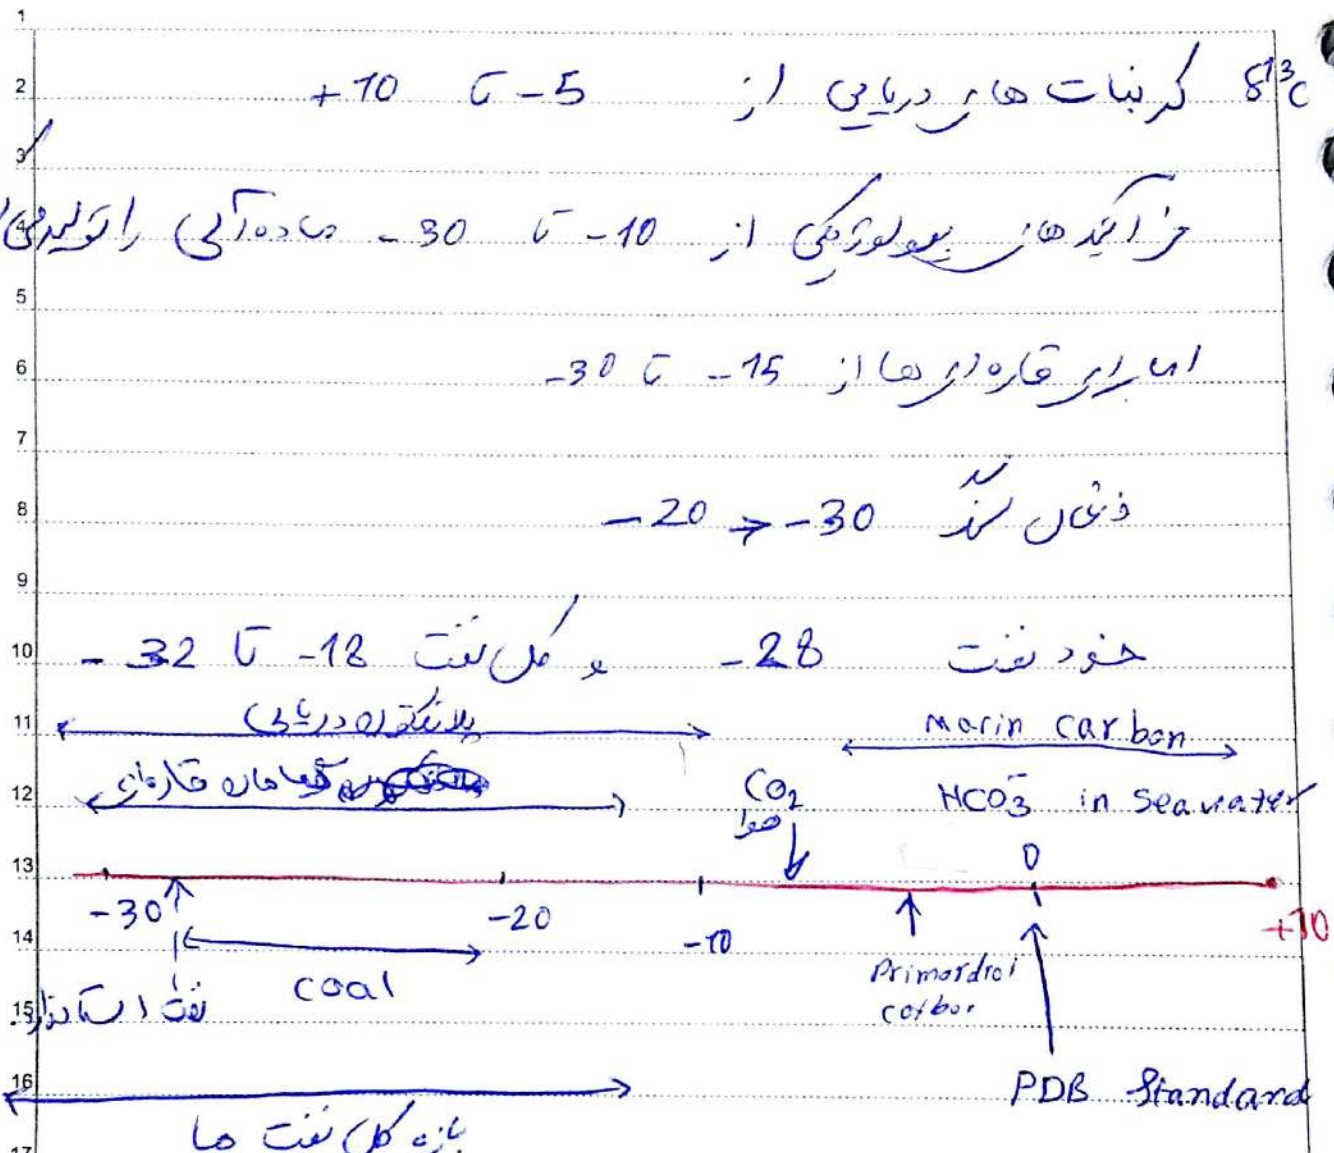 1
2 δ¹³C کربنات های دریایی از -5 تا +10
3
4 فرآیندهای بیولوژیکی از -10 تا -30 ماده آلی را تولید می
5
6 اما برای قاره‌ای ها از -15 تا -30
7
8 ذغال سنگ -30 → -20
9
10 خود نفت -28 و کل نفت -18 تا -32
11 پلانکتون دریایی marin carbon
12 گیاهان قاره‌ای CO₂ هوا HCO₃⁻ in seawater
13 0
-30 -20 -10 +10
14 coal Primordial carbon
15 نفت استاندارد
16 PDB Standard
17 بازه کل نفت ها